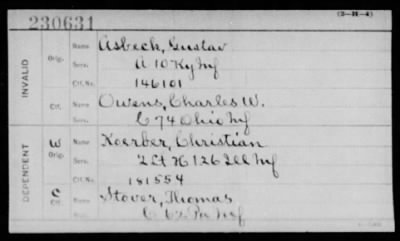 230631
(3-21-4)
INVALID
Orig.
Name Asbeck, Gustav
Serv. A 10 Ky Inf
Ctf. No. 146101
Ctf.
Name Owens, Charles W.
Serv. C 74 Ohio Inf
DEPENDENT
W Orig.
Name Koerber, Christian
Serv. 2 Lt H 126 Ill Inf
Ctf. No. 181554
C Ctf.
Name Stover, Thomas
C 62 Pa Inf